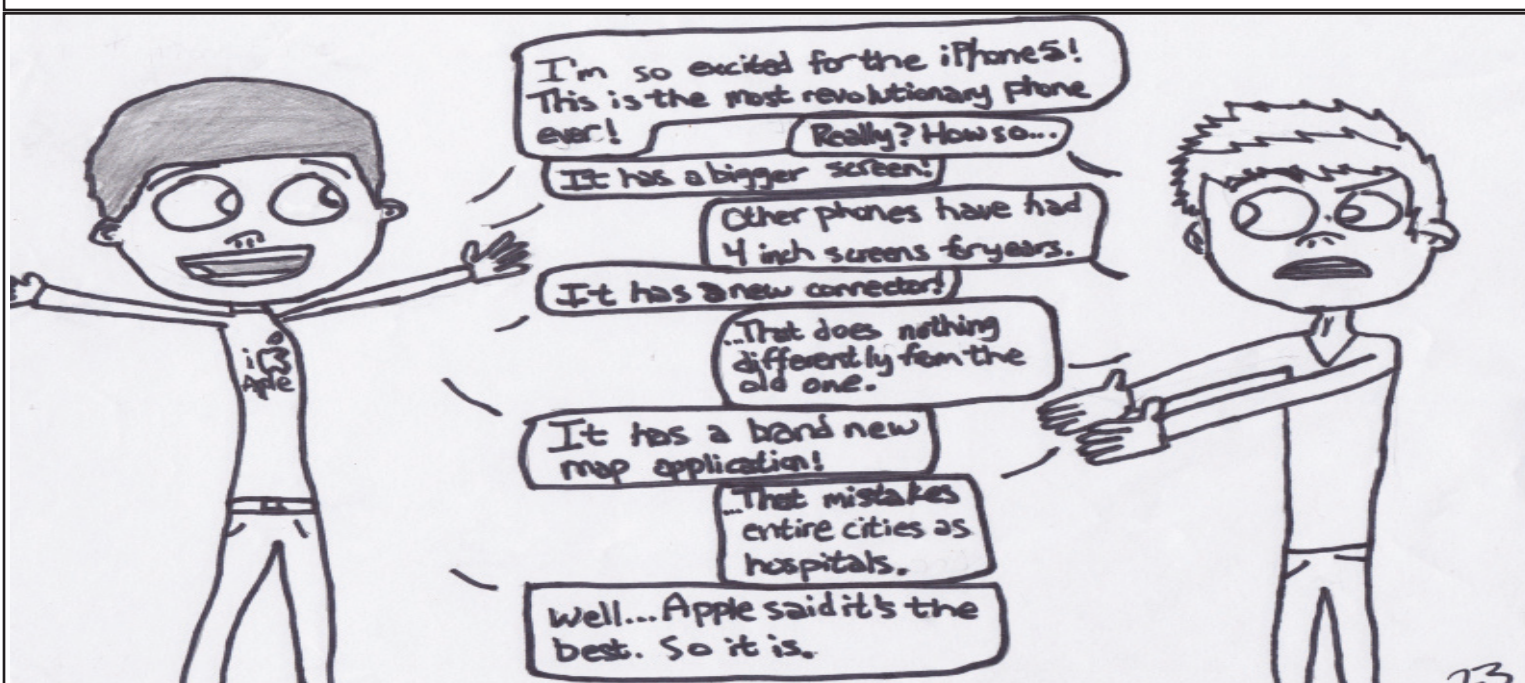 I'm so excited for the iPhone5!
This is the most revolutionary phone
ever!
Really? How so...
It has a bigger screen!
Other phones have had
4 inch screens for years.
It has a new connector!
...That does nothing
differently from the
old one.
It has a brand new
map application!
...That mistakes
entire cities as
hospitals.
Well... Apple said it's the
best. So it is.
i
Aple
23